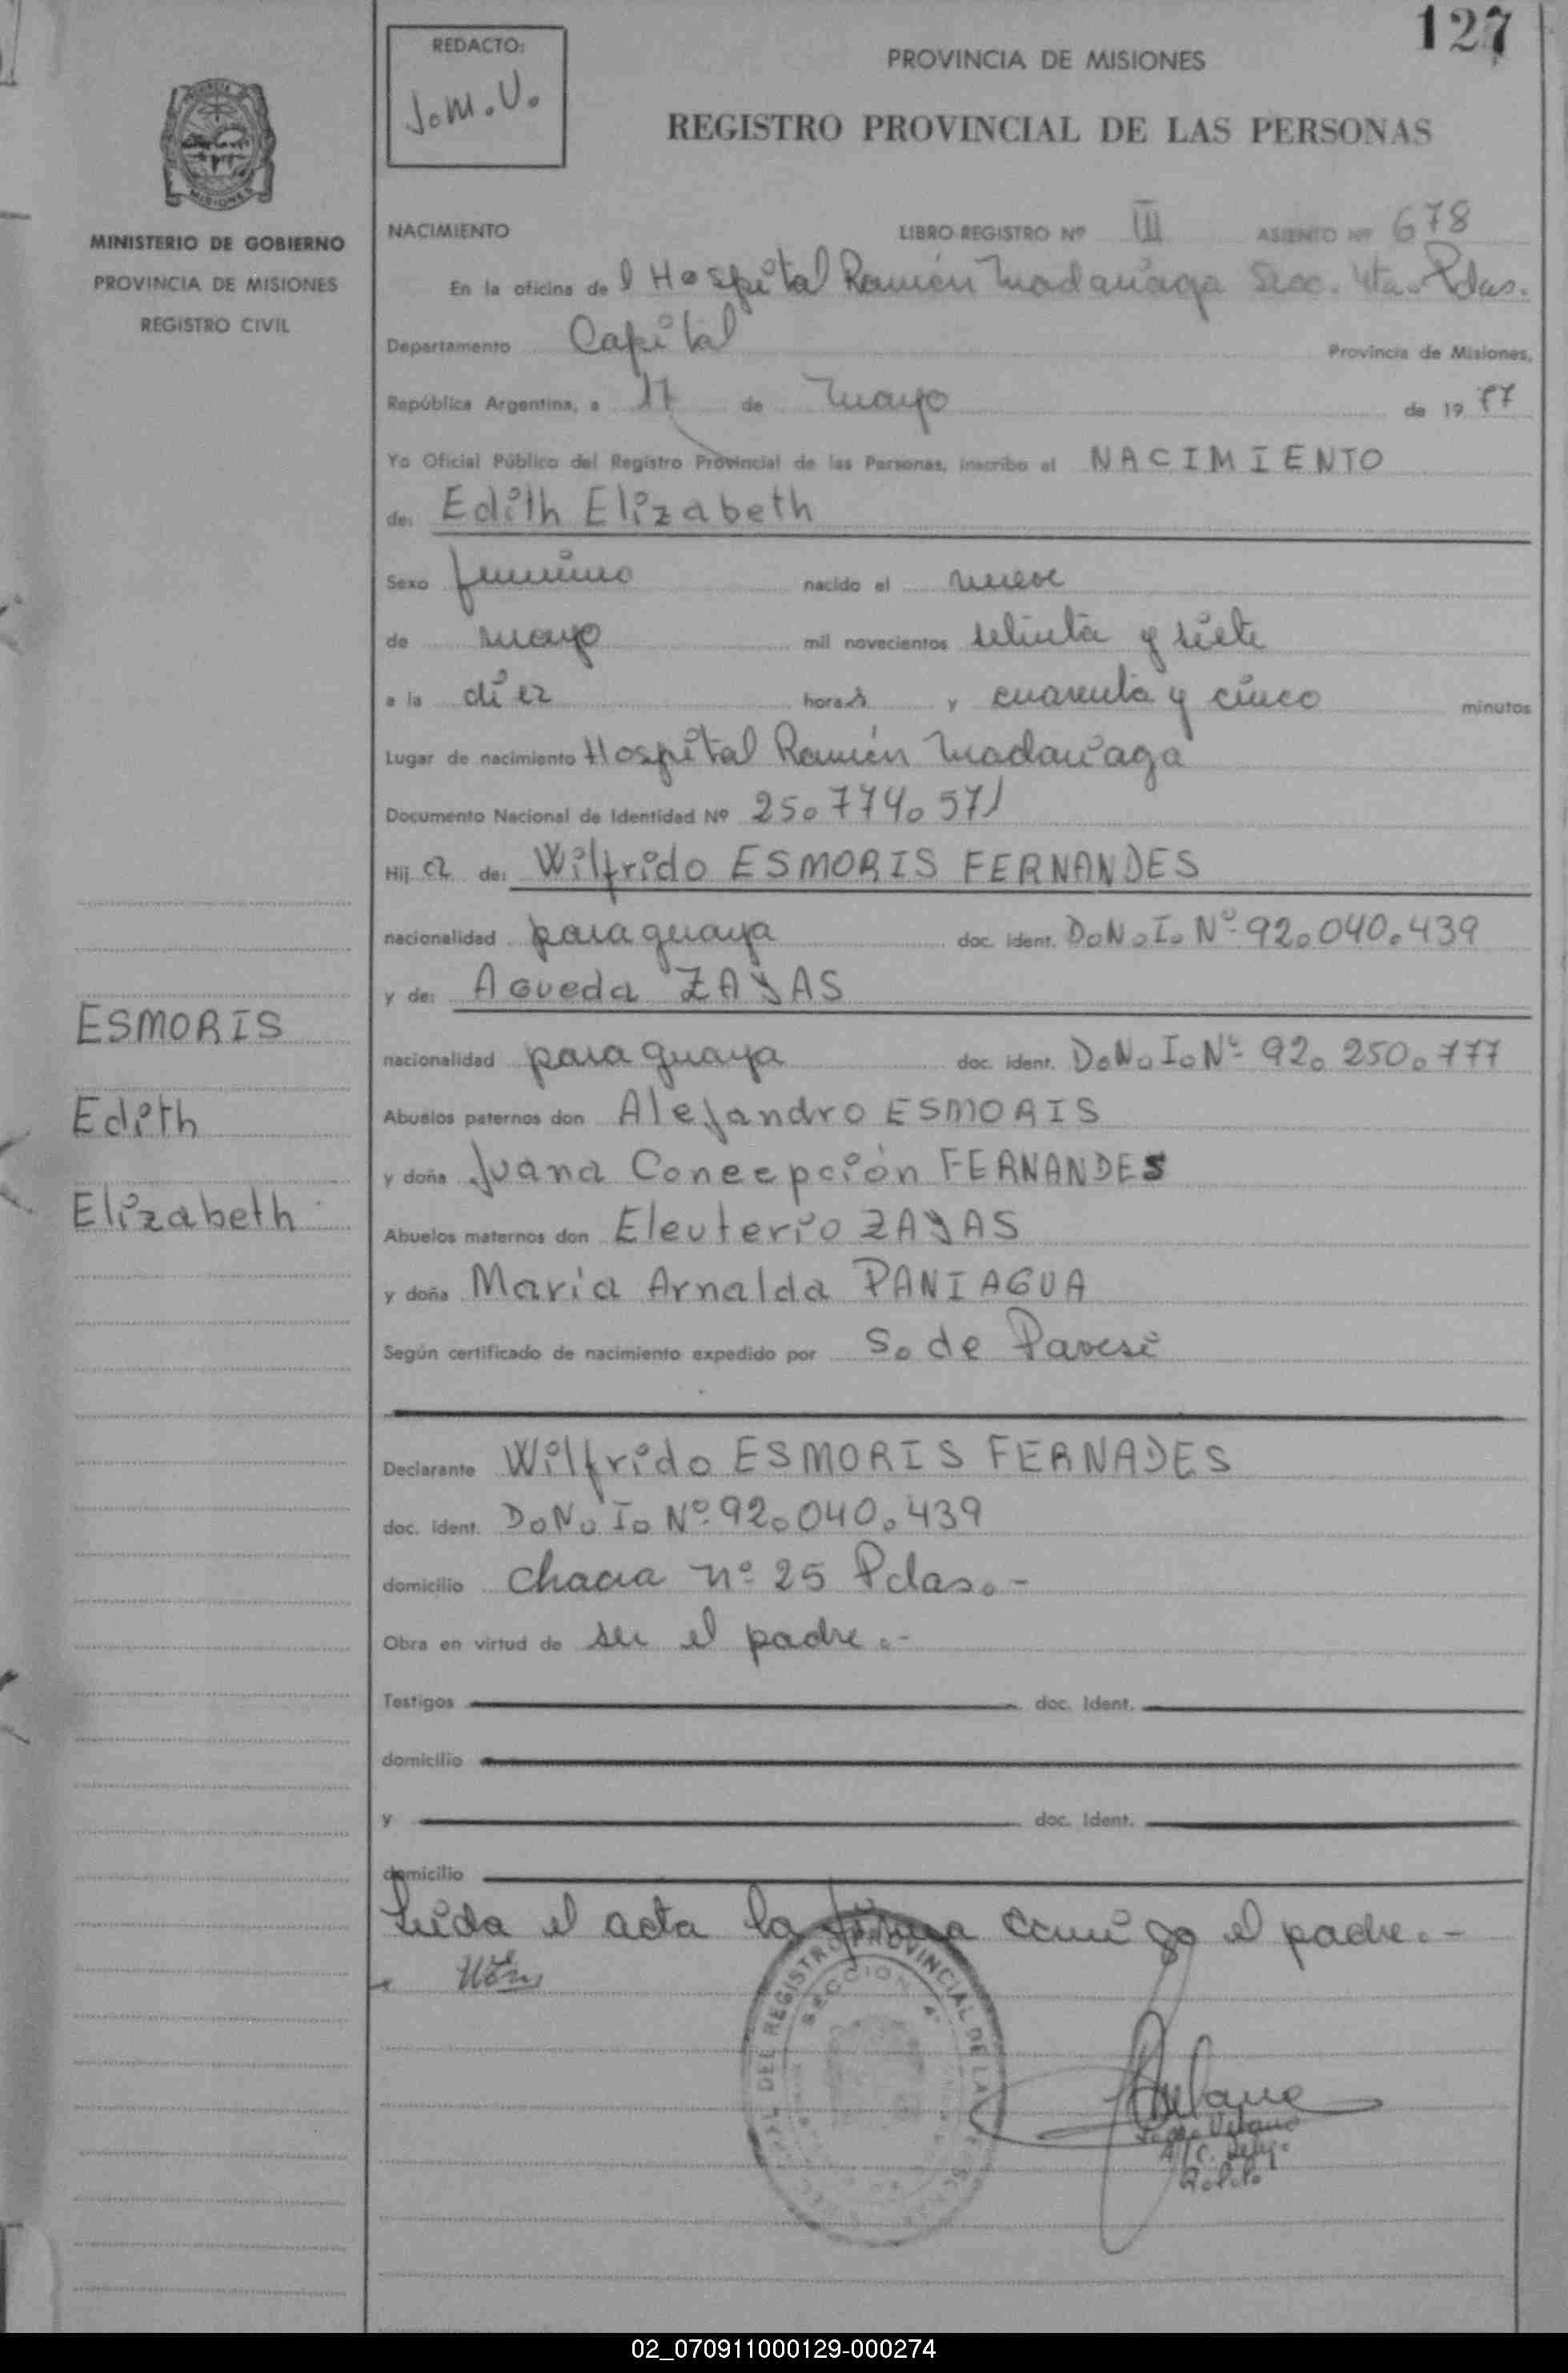 127
REDACTO:
J.M.V.
PROVINCIA DE MISIONES
REGISTRO PROVINCIAL DE LAS PERSONAS
MISIONES
MINISTERIO DE GOBIERNO
PROVINCIA DE MISIONES
REGISTRO CIVIL
NACIMIENTO LIBRO REGISTRO Nº III ASIENTO Nº 678
En la oficina del Hospital Ramón Madariaga Secc. 4ta. Pdas.
Departamento Capital Provincia de Misiones,
República Argentina, a 17 de mayo de 1977
Yo Oficial Público del Registro Provincial de las Personas, inscribo el NACIMIENTO
de: Edith Elizabeth
Sexo femenino nacido el nueve
de mayo mil novecientos setenta y siete
a la diez horas y cuarenta y cinco minutos
Lugar de nacimiento Hospital Ramón Madariaga
Documento Nacional de Identidad Nº 25.774.571
Hija de: Wilfrido ESMORIS FERNANDES
nacionalidad paraguaya doc. ident. D.N.I. Nº 92.040.439
y de: Agueda ZAYAS
nacionalidad paraguaya doc. ident. D.N.I. Nº 92.250.777
Abuelos paternos don Alejandro ESMORIS
y doña Juana Concepción FERNANDES
Abuelos maternos don Eleuterio ZAYAS
y doña Maria Arnalda PANIAGUA
Según certificado de nacimiento expedido por S. de Pavesi
ESMORIS
Edith
Elizabeth
Declarante Wilfrido ESMORIS FERNADES
doc. ident. D.N.I. Nº 92.040.439
domicilio chacra nº 25 Pdas.-
Obra en virtud de ser el padre.-
Testigos doc. Ident.
domicilio
y doc. Ident.
domicilio
Leída el acta la firma conmigo el padre.-
DEL REGISTRO PROVINCIAL DE LAS
SECCION 4ª
02_070911000129-000274